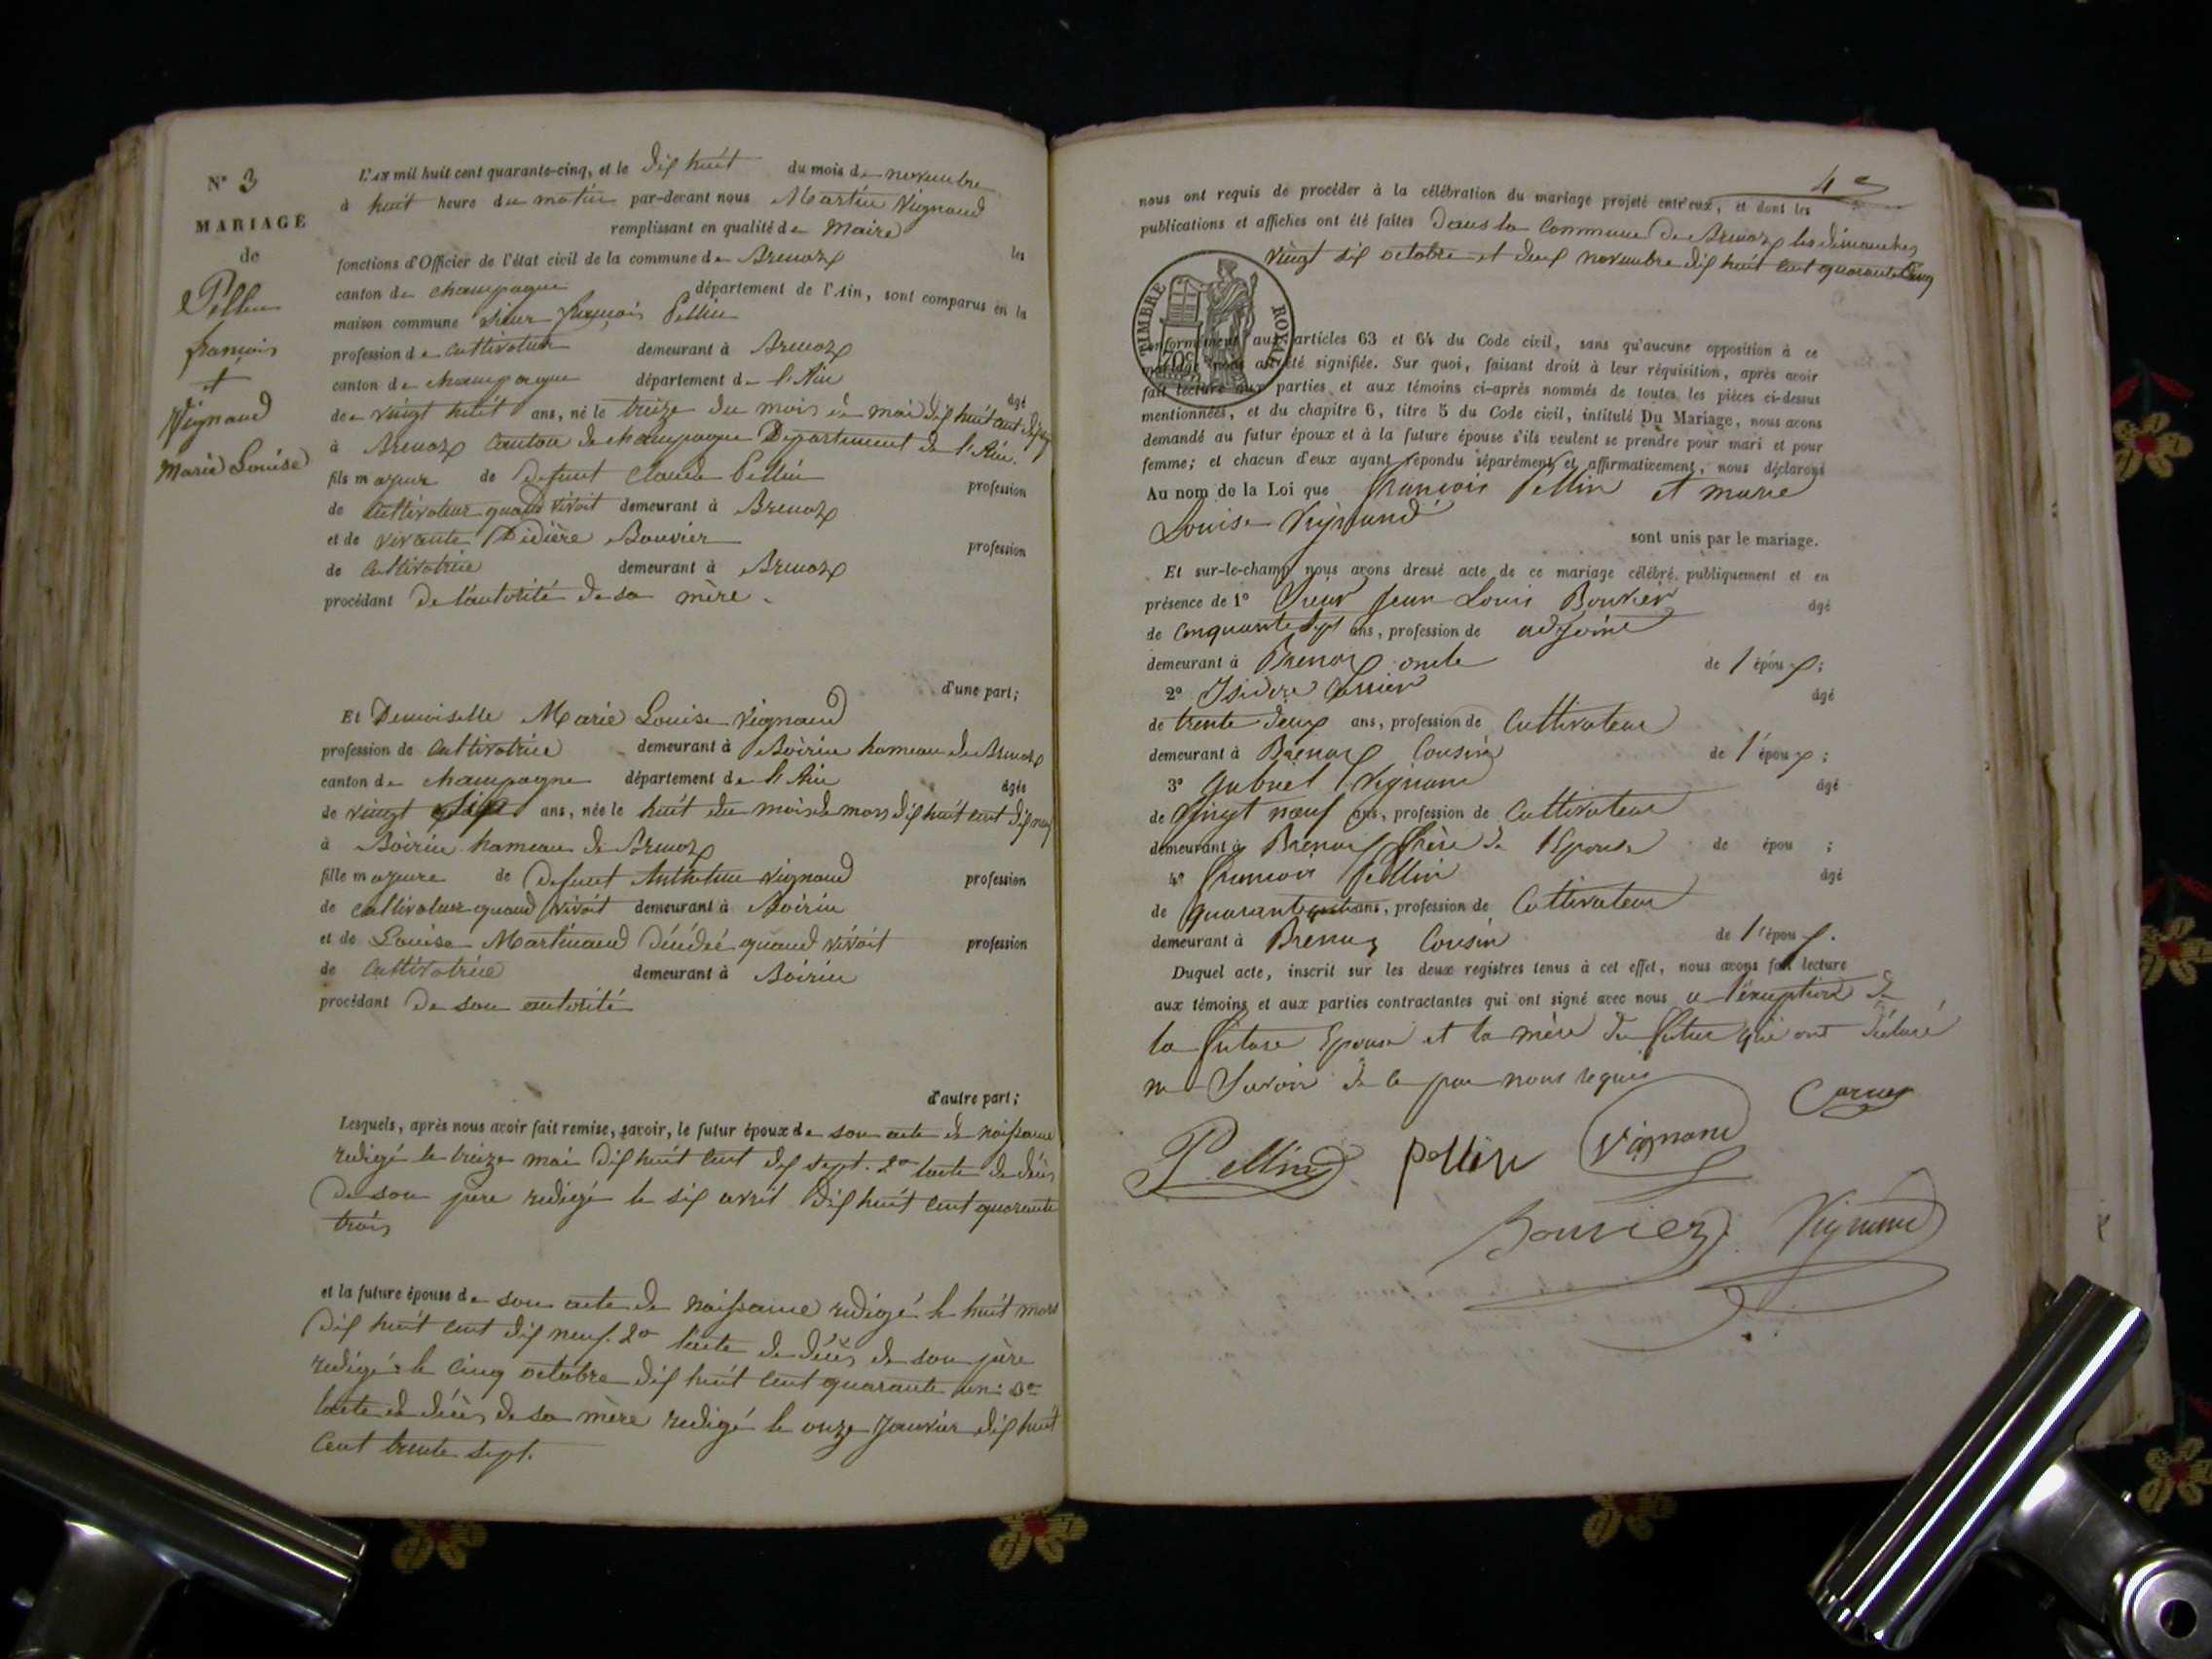 N° 3
MARIAGE
de
Pellin
françois
et
Vignand
Marie Louise
L'an mil huit cent quarante-cinq, et le dix huit du mois de novembre
à huit heure du matin par-devant nous Martin Vignand
remplissant en qualité de Maire les
fonctions d'Officier de l'état civil de la commune de Brenaz
canton de champagne département de l'Ain, sont comparus en la
maison commune Sieur françois Pellin
profession de cultivateur demeurant à Brenaz
canton de champagne département de l'Ain âgé
de vingt huit ans, né le treize du mois de mai dix huit cent dix sept
à Brenaz Canton de champagne Département de l'Ain.
fils majeur de défunt Claude Pellin profession
de cultivateur quand vivoit demeurant à Brenaz
et de vivante Didière Bouvier profession
de cultivatrice demeurant à Brenaz
procédant de l'autorité de sa mère.
d'une part;
Et Demoiselle Marie Louise Vignand
profession de cultivatrice demeurant à Boirin hameau de Brenaz
canton de champagne département de l'Ain âgée
de vingt six ans, née le huit du mois de mars dix huit cent dix neuf
à Boirin hameau de Brenaz
fille majeure de défunt Anthelme Vignand profession
de cultivateur quand vivoit demeurant à Boirin
et de Louise Martinand décédée quand vivoit profession
de cultivatrice demeurant à Boirin
procédant de son autorité
d'autre part;
Lesquels, après nous avoir fait remise, savoir, le futur époux de son acte de naissance
redigé le treize mai dix huit cent dix sept. 2° l'acte de décès
de son père redigé le six avril dix huit cent quarante
trois
et la future épouse de son acte de naissance redigé le huit mars
dix huit cent dix neuf. 2° l'acte de décès de son père
redigé le cinq octobre dix huit cent quarante un: 3°
l'acte de décès de sa mère redigé le onze Janvier dix huit
cent trente sept.
4e
nous ont requis de procéder à la célébration du mariage projeté entr'eux, et dont les
publications et affiches ont été faites dans la Commune de Brenaz les dimanches
vingt six octobre et deux novembre dix huit cent quarante cinq
TIMBRE ROYAL
70c
conformément aux articles 63 et 64 du Code civil, sans qu'aucune opposition à ce
mariage nous ait été signifiée. Sur quoi, faisant droit à leur réquisition, après avoir
fait lecture aux parties et aux témoins ci-après nommés de toutes les pièces ci-dessus
mentionnées, et du chapitre 6, titre 5 du Code civil, intitulé Du Mariage, nous avons
demandé au futur époux et à la future épouse s'ils veulent se prendre pour mari et pour
femme; et chacun d'eux ayant répondu séparément et affirmativement, nous déclarons
Au nom de la Loi que françois Pellin et marie
Louise Vignand
sont unis par le mariage.
Et sur-le-champ nous avons dressé acte de ce mariage célébré publiquement et en
présence de 1° Sieur Jean Louis Bouvier âgé
de cinquante sept ans, profession de adjoint
demeurant à Brenaz oncle de l'époux;
2° Isidore âgé
de trente deux ans, profession de Cultivateur
demeurant à Brenaz Cousin de l'époux;
3° Gabriel Vignand âgé
de vingt neuf ans, profession de Cultivateur
demeurant à Brenaz frère de l'Epouse de épou ;
4° françois Pellin âgé
de quarante ans, profession de Cultivateur
demeurant à Brenaz Cousin de l'époux.
Duquel acte, inscrit sur les deux registres tenus à cet effet, nous avons fait lecture
aux témoins et aux parties contractantes qui ont signé avec nous a l'exception de
la future Epouse et la mère du futur qui ont déclaré
ne Savoir de ce par nous requis
Pellin pellin Vignand
Bouvier Vignand